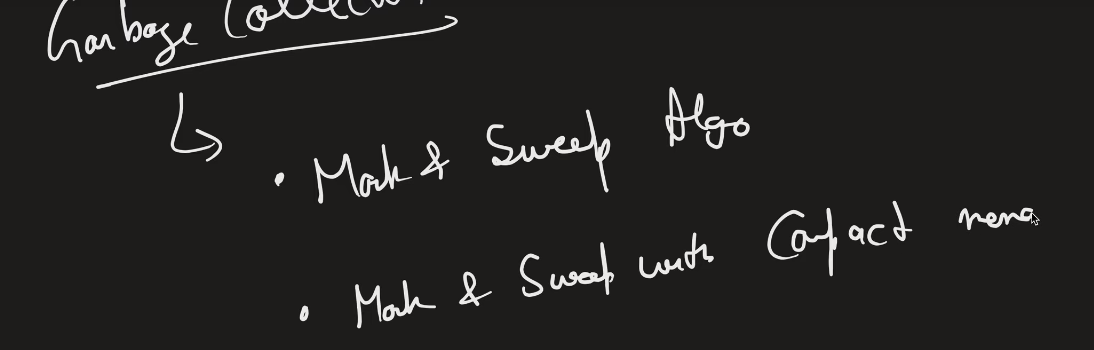 Garbage Collect
• Mark & Sweep Algo
• Mark & Sweep with Compact memo